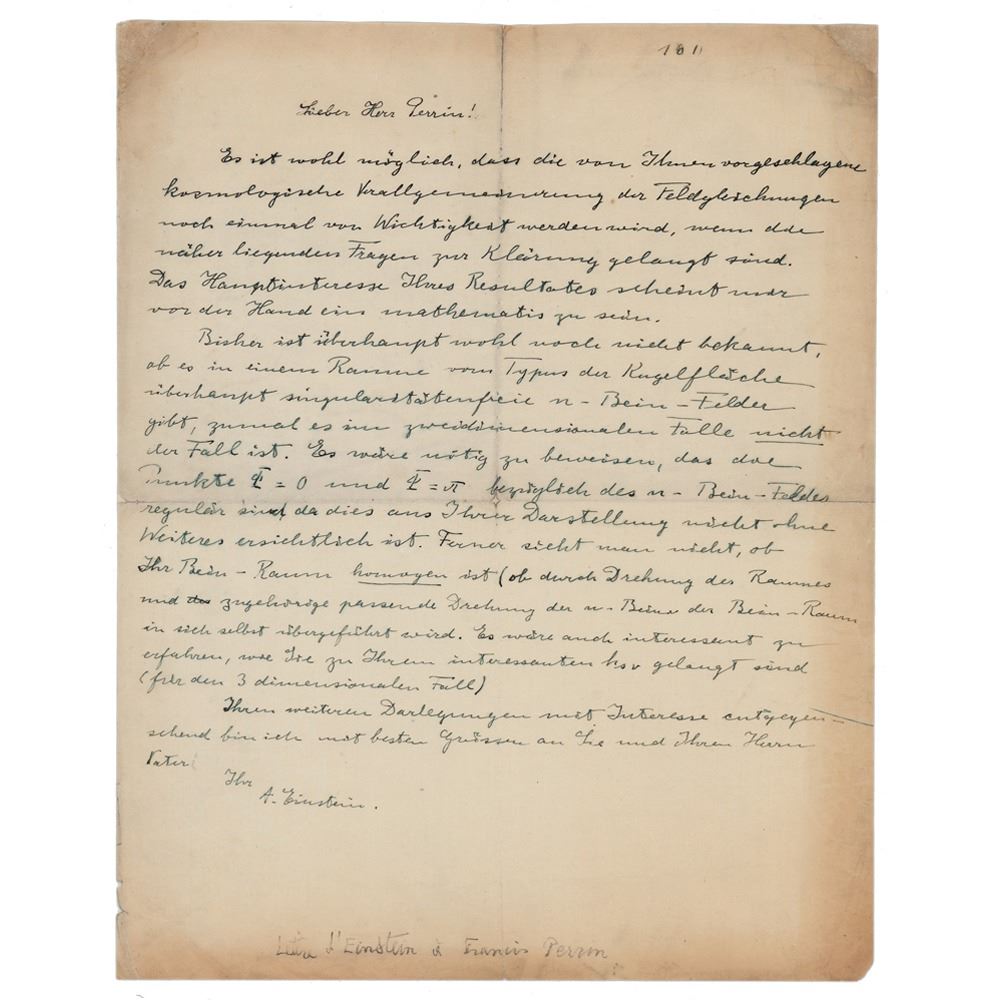 161
Lieber Herr Perrin!
Es ist wohl möglich, dass die von Ihnen vorgeschlagene
kosmologische Verallgemeinerung der Feldgleichungen
noch einmal von Wichtigkeit werden wird, wenn die
näher liegenden Fragen zur Klärung gelangt sind.
Das Hauptinteresse Ihres Resultates scheint mir
vor der Hand ein mathematis zu sein.
Bisher ist überhaupt wohl noch nicht bekannt,
ob es in einem Raume vom Typus der Kugelfläche
überhaupt singularitätenfreie n-Bein-Felder
gibt, zumal es im zweidimensionalen Falle nicht
der Fall ist. Es wäre nötig zu beweisen, das die
Punkte = 0 und = π bezüglich des n-Bein-Feldes
regulär sind, da dies aus Ihrer Darstellung nicht ohne
Weiteres ersichtlich ist. Ferner sieht man nicht, ob
Ihr Bein-Raum homogen ist (ob durch Drehung des Raumes
und zugehörige passende Drehung der n-Beine der Bein-Raum
in sich selbst übergeführt wird. Es wäre auch interessant zu
erfahren, wie Sie zu Ihrem interessanten gelangt sind
(für den 3 dimensionalen Fall)
Ihren weiteren Darlegungen mit Interesse entgegen-
sehend bin ich mit besten Grüssen an Sie und Ihren Herrn
Vater
Ihr
A. Einstein.
Lettre d'Einstein à Francis Perrin